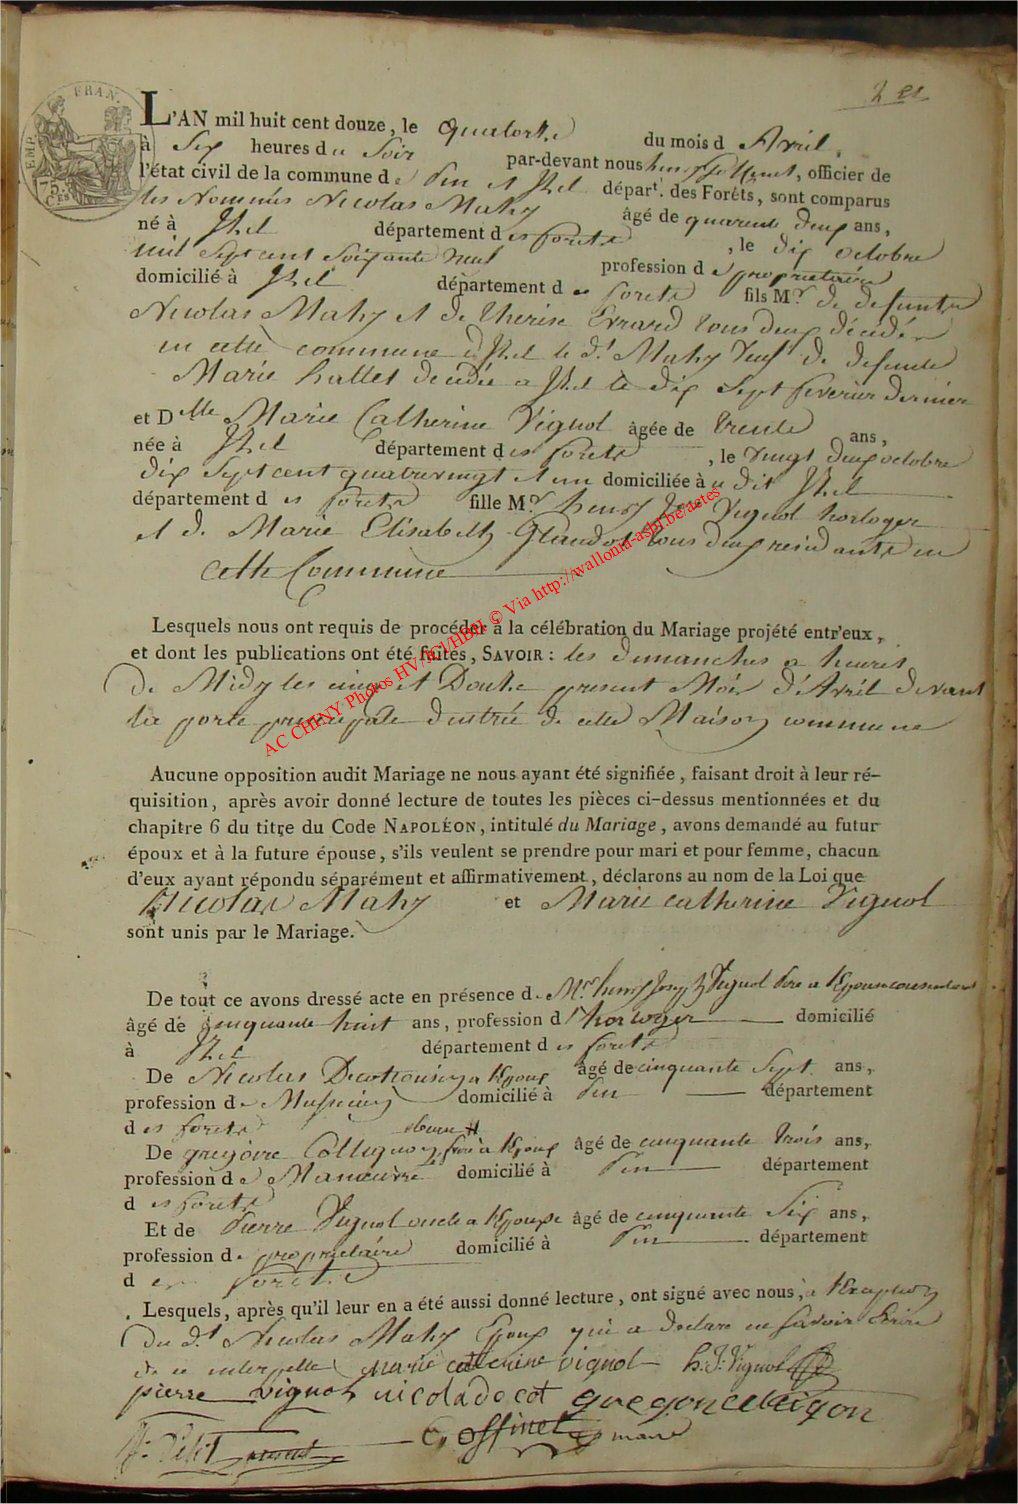 EMP. FRAN.
75
C.ES
2 et
L'AN mil huit cent douze, le quatorze du mois d Avril,
à Six heures du Soir par-devant nous henry Goffinet, officier de
l'état civil de la commune de Pin et Izel départ. des Forêts, sont comparus
les Nommés Nicolas Mahy âgé de quarente deux ans,
né à Izel département des forets, le dix octobre
mil Sept cent soixante neuf profession de proprietaire
domicilié à Izel département des forets fils Mr. de defunts
Nicolas Mahy et de therese Evrard tous deux décédés
en cette commune d'Izel le dt. Mahy veuf de defunte
Marie hallet decedée a Izel le dix Sept fevrier dernier
et Delle Marie Catherine Vignol âgée de trente ans,
née à Izel département des forets, le vingt deux octobre
dix Sept cent quatrevingt et un domiciliée à u dit Izel
département des forets fille Mr. henry Jos. Vignol horloger
et de Marie Elisabeth Glaudot tous deux residants en
cette Commune
Lesquels nous ont requis de procéder à la célébration du Mariage projété entr'eux,
et dont les publications ont été faites, SAVOIR: les dimanches a heures
de Midy les cinq et Douze present Mois d'Avril devant
la porte principale d'entrée de cette Maison commune
Aucune opposition audit Mariage ne nous ayant été signifiée, faisant droit à leur ré-
quisition, après avoir donné lecture de toutes les pièces ci-dessus mentionnées et du
chapitre 6 du titre du Code NAPOLÉON, intitulé du Mariage, avons demandé au futur
époux et à la future épouse, s'ils veulent se prendre pour mari et pour femme, chacun
d'eux ayant répondu séparément et affirmativement, déclarons au nom de la Loi que
Nicolas Mahy et Marie catherine Vignol
sont unis par le Mariage.
De tout ce avons dressé acte en présence d. Mr. henry Joseph Vignol Pere a l'Epouse
âgé de cinquante huit ans, profession d'horloger domicilié
à Izel département des forets
De Nicolas a l'Epoux âgé de cinquante Sept ans,
profession de domicilié à Pin département
des forets
De gregoire Collignon a l'Epoux âgé de cinquante trois ans,
profession de Manœuvre domicilié à Pin département
des forets
Et de Pierre Vignol oncle a l'Epouse âgé de cinquante Six ans,
profession de proprietaire domicilié à Pin département
des forets
Lesquels, après qu'il leur en a été aussi donné lecture, ont signé avec nous, a l'Exception
Du dt. Nicolas Mahy Epoux qui a declare ne savoir Ecrire
de ce interpellé marie catherine vignol h. J. Vignol
pierre vignol nicola decot
Goffinet maire
AC CHINY Photos HV/ACI/HEBI © Via http://wallonia-asbl.be/actes